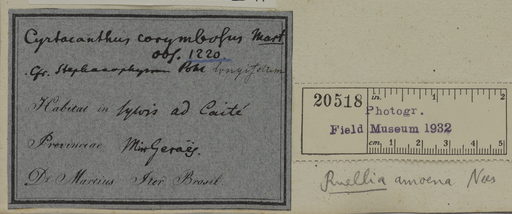 Cyrtacanthus corymbosus Mart
obs. 1220
Cfr. Stephanophysum Pohl longifolium
Habitat in sylvis ad Caité
Provinciae Min. Geraës.
Dr. Martius Iter Brasil.
20518
in. 1 2
Photogr.
Field Museum 1932
cm. 1 2 3 4 5
Ruellia amoena Nees